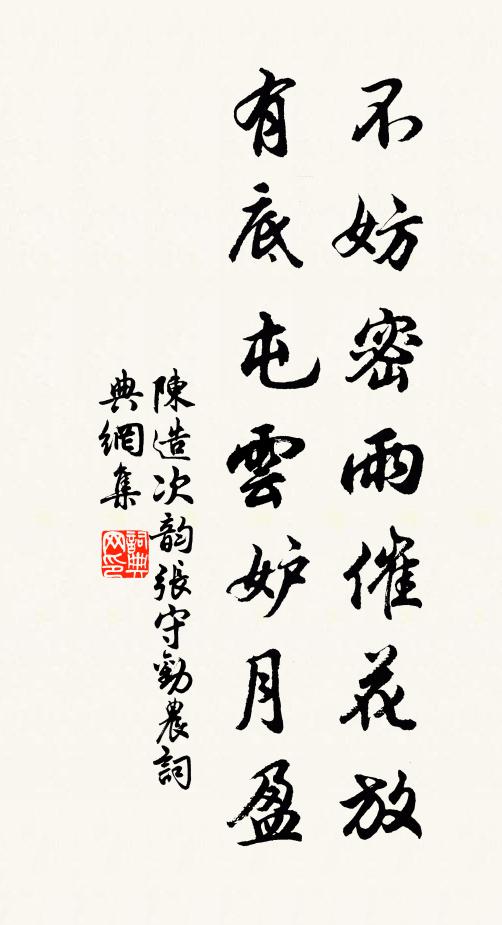 不妨密雨催花放
有底屯雲妒月盈
陳造次韵張守勸農詞
典網集
詞典网印